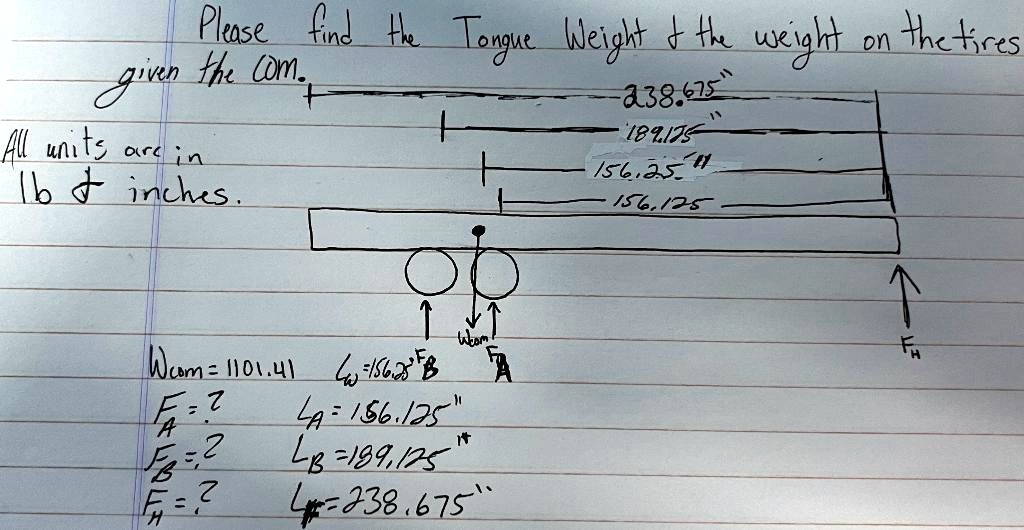 Please find the Tongue Weight & the weight on the tires
given the COM.
238.675"
All units are in
lb & inches.
189.125"
156.25"
156.125
Wcom
F_B
F_A
F_H
Wcom = 1101.41 L_w = 156.25"
F_A = ? L_A = 156.125"
F_B = ? L_B = 189.125"
F_H = ? L = 238.675"